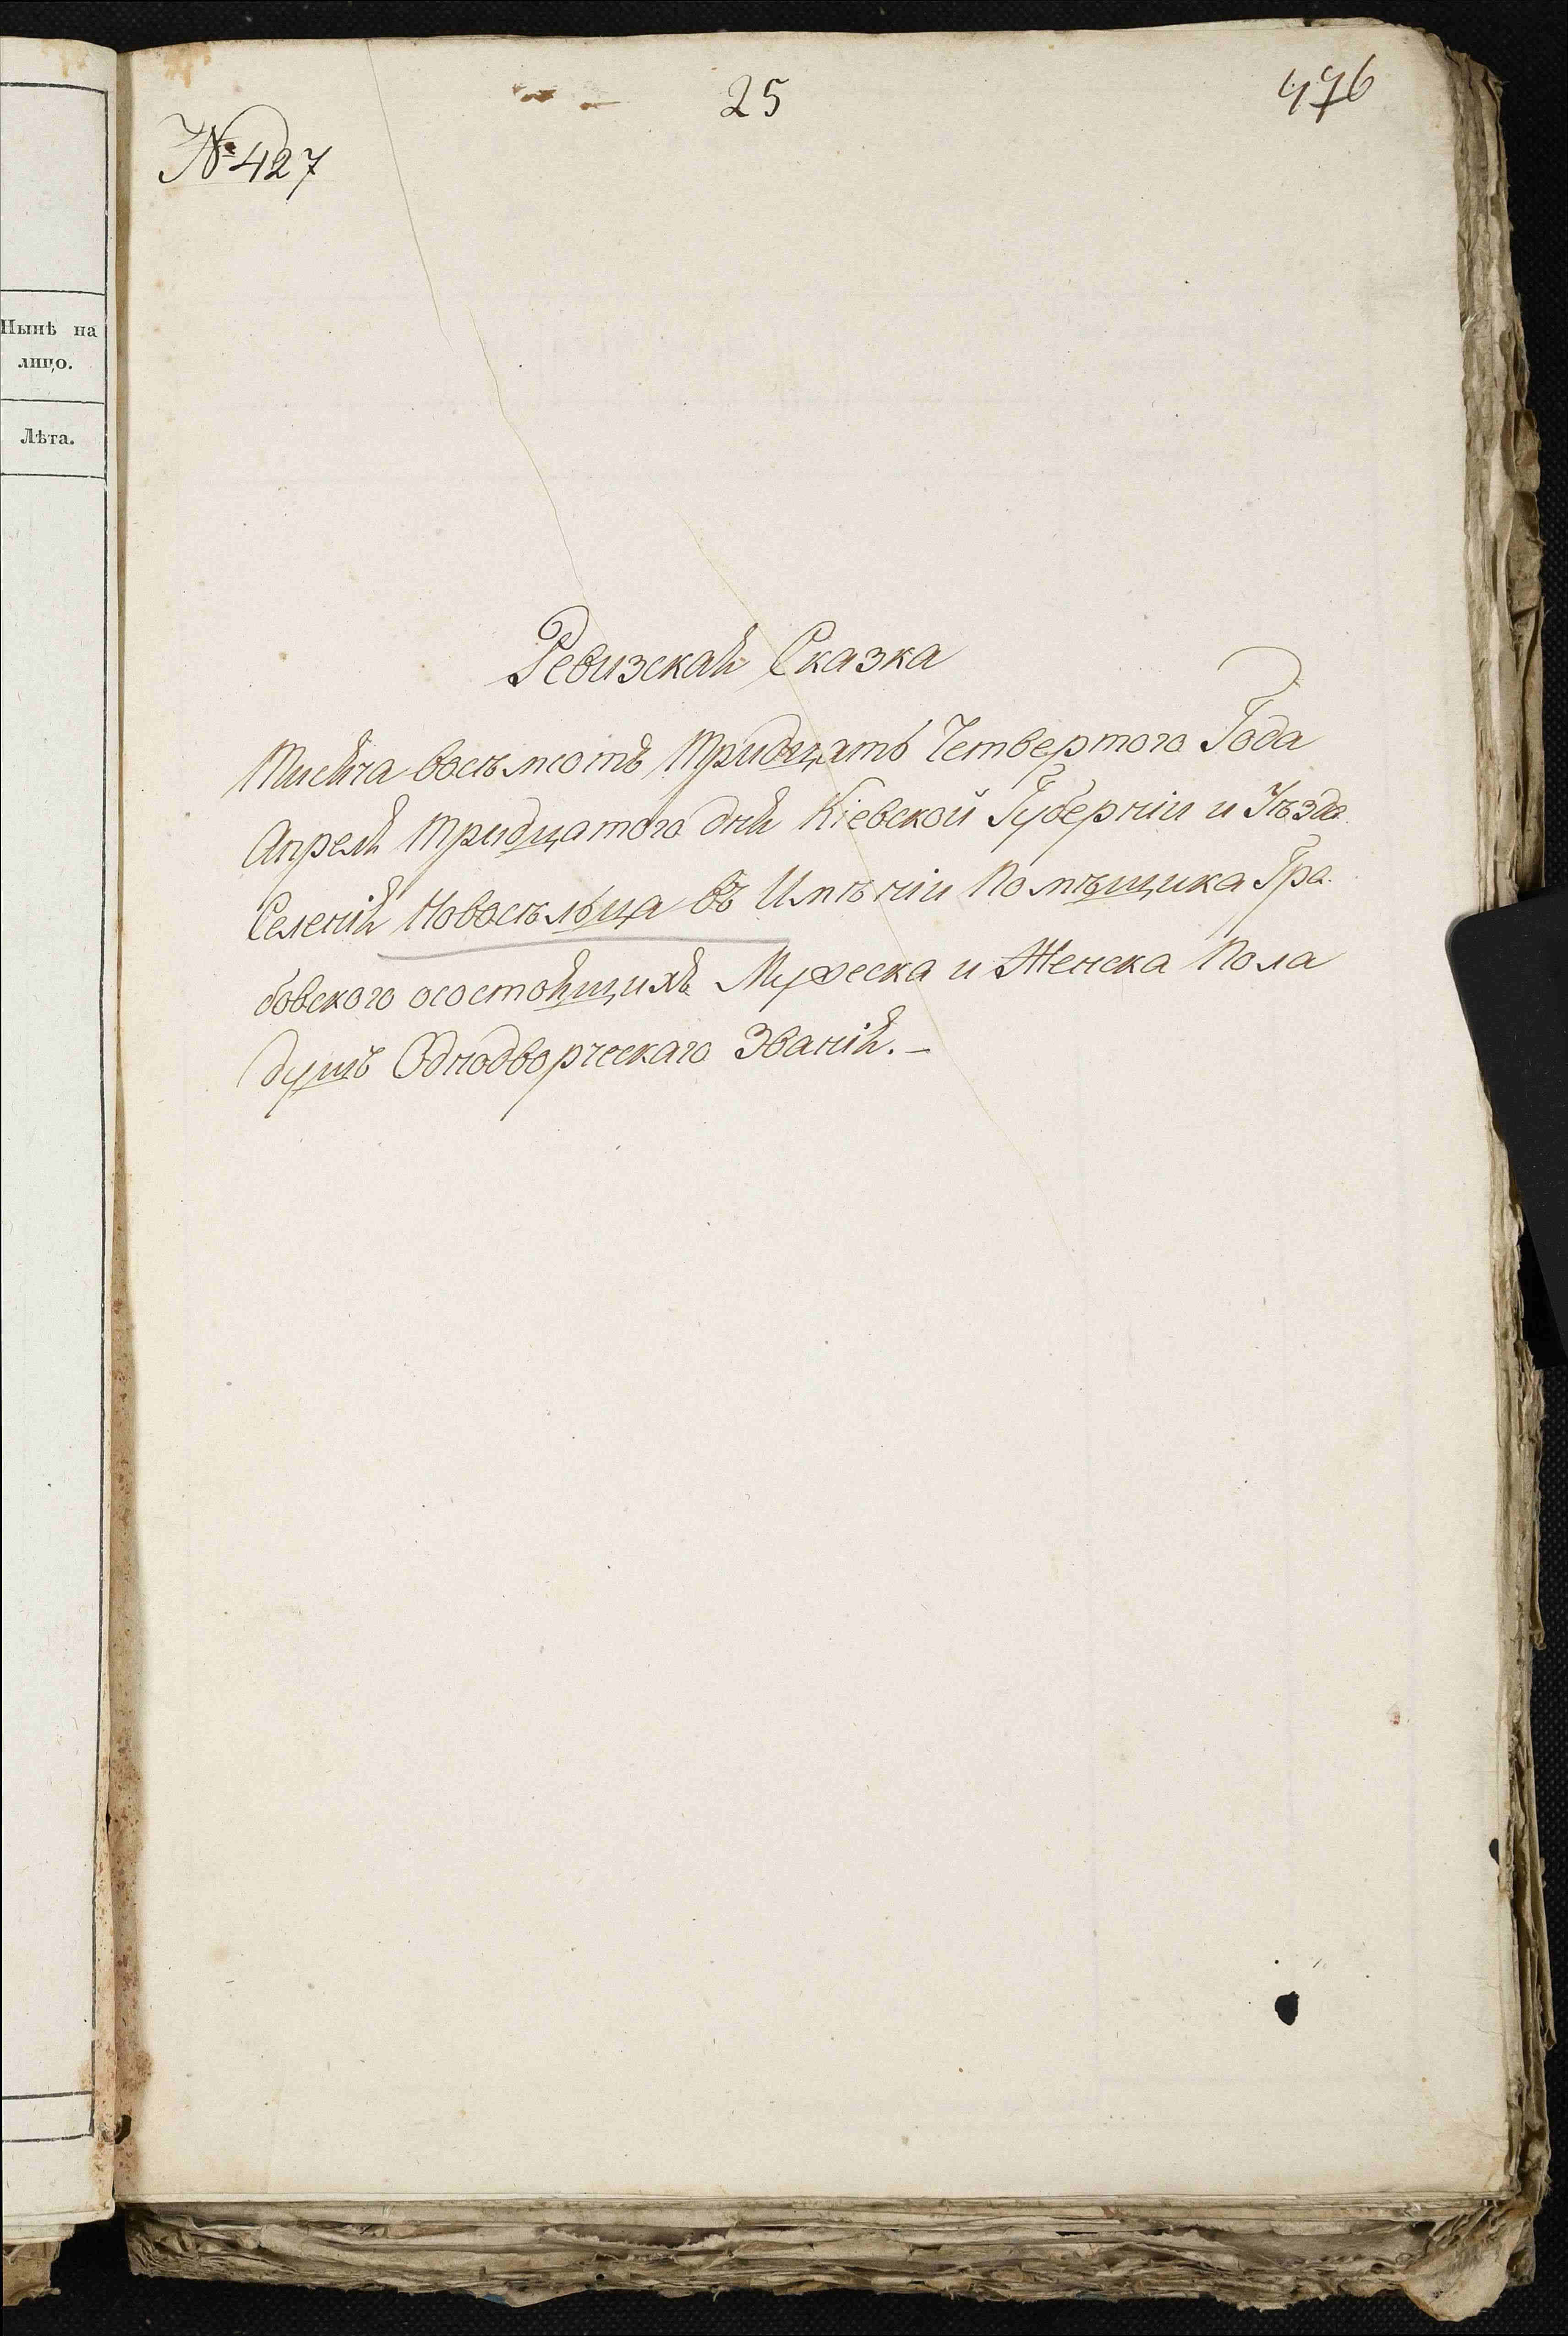 Нынѣ на
лицо.
Лѣта.
25
476
№ 427
Ревизская Сказка
Тисяча восемьсотъ Тридцать Четвертого Года
Апреля Тридцатого дня Кіевской Губерніи и Уѣзда
Селенія Новосѣльца въ Имѣніи Помѣщика Гра-
бовского осостоящихъ Мужеска и Женска Пола
душъ Однодворческаго Званія.-